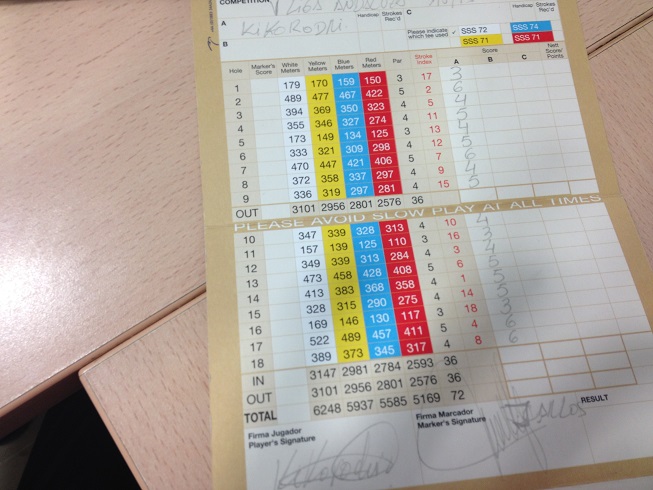 COMPETITION
Handicap Strokes Rec'd
A KIKORODRI.
B
C
Handicap Strokes Rec'd
Please indicate which tee used ✓ SSS 72 SSS 74
SSS 71 SSS 71
Hole Marker's Score White Meters Yellow Meters Blue Meters Red Meters Par Stroke Index Score A B C Nett Score/ Points
1 179 170 159 150 3 17 3
2 489 477 467 422 5 2 6
3 394 369 350 323 4 5 4
4 355 346 327 274 4 11 5
5 173 149 134 125 3 13 4
6 333 321 309 298 4 12 5
7 470 447 421 406 5 7 6
8 372 358 337 297 4 9 4
9 336 319 297 281 4 15 5
OUT 3101 2956 2801 2576 36
PLEASE AVOID SLOW PLAY AT ALL TIMES
10 347 339 328 313 4 10 4
11 157 139 125 110 3 16 3
12 349 339 313 284 4 3 4
13 473 458 428 408 5 6 5
14 413 383 368 358 4 1 5
15 328 315 290 275 4 14
16 169 146 130 117 3 18 3
17 522 489 457 411 5 4 6
18 389 373 345 317 4 8 6
IN 3147 2981 2784 2593 36
OUT 3101 2956 2801 2576 36
TOTAL 6248 5937 5585 5169 72
Firma Jugador
Player's Signature
Firma Marcador
Marker's Signature
RESULT